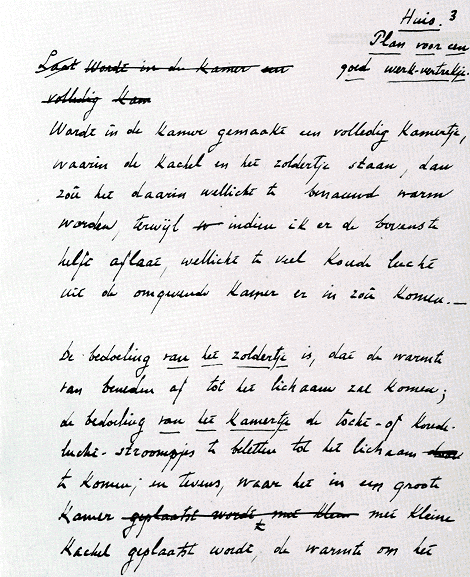 Huis. 3
Plan voor een
goed werk-vertrekje.
Laat Wordt in de Kamer een
volledig Kam
Wordt in de Kamer gemaakt een volledig Kamertje,
waarin de Kachel en het zoldertje staan, dan
zoû het daarin wellicht te benauwd warm
worden, terwijl indien ik er de bovenste
helft aflaat, wellicht te veel Koude lucht
uit de omgevende Kamer er in zoû Komen.—
De bedoeling van het zoldertje is, dat de warmte
van beneden af tot het lichaam zal Komen;
de bedoeling van het Kamertje de tocht- of Koude-
lucht-stroompjes te beletten tot het lichaam
te Komen; en tevens, waar het in een groote
Kamer geplaatst wordt met klein met Kleine
Kachel geplaatst wordt, de warmte om het